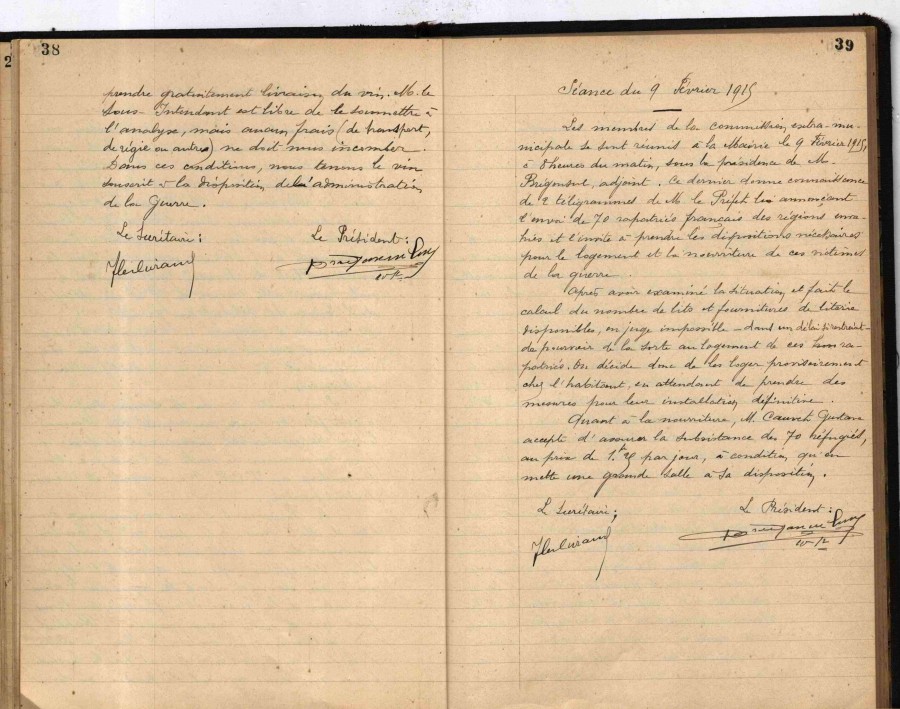 38
prendre gratuitement livraison du vin. M. le
Sous-Intendant est libre de le soumettre à
l'analyse, mais aucun frais (de transport,
de régie ou autres) ne doit nous incomber.
Dans ces conditions, nous tenons le vin
souscrit à la disposition de l'administration
de la Guerre.
Le Secrétaire: Le Président:
2
39
Séance du 9 Février 1915
Les membres de la commission extra-mu-
nicipale se sont réunis à la Mairie le 9 Février 1915,
à 8 heures du matin, sous la présidence de M.
adjoint. Ce dernier donne connaissance
de 2 télégrammes de M. le Préfet les annonçant
l'envoi de 70 rapatriés français des régions enva-
hies et l'invite à prendre les dispositions nécessaires
pour le logement et la nourriture de ces victimes
de la guerre.
Après avoir examiné la situation et fait le
calcul du nombre de lits et fournitures de literie
disponibles, on juge impossible - dans un délai si restreint -
de pourvoir de la sorte au logement de ces ra-
patriés. On décide donc de les loger provisoirement
chez l'habitant, en attendant de prendre des
mesures pour leur installation définitive.
Quant à la nourriture, M. Cauvet Gustave
accepte d'assurer la subsistance des 70 réfugiés,
au prix de par jour, à condition qu'on
mette une grande salle à sa disposition.
L Secrétaire; L Président: